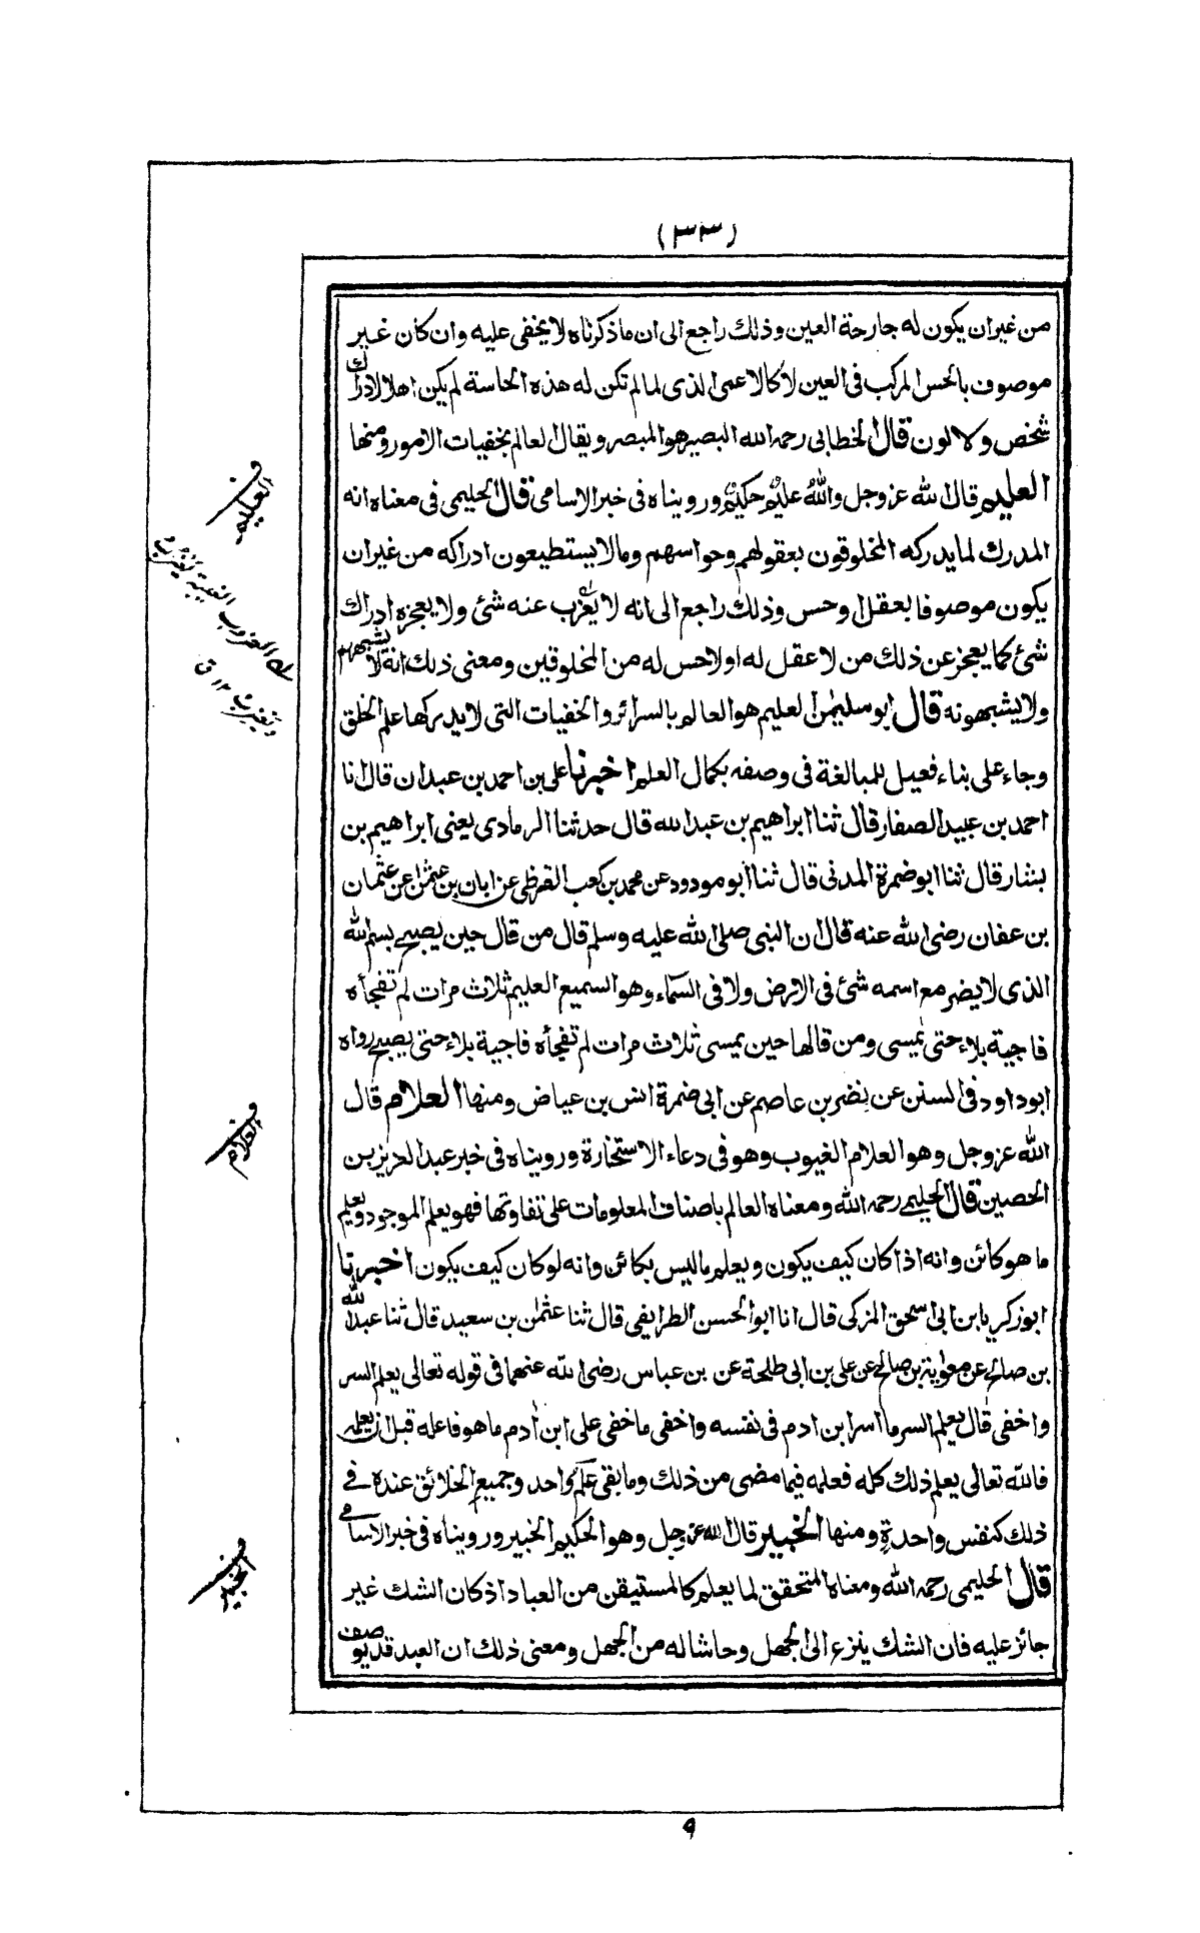 (٣٣)
من غيران يكون له جارحة العين وذلك راجع الى ان ماذكرناه لا يخفى عليه وان كان غير
موصوف بالحس المركب فى العين لا كالاعمى الذى لما لم تكن له هذه الحاسة لم يكن اهلا لادراك
شخص ولا لون قال الخطابى رحمه الله البصير هو المبصر ويقال العالم بخفيات الامور ومنها
العليم قال الله عز وجل والله عليم حكيم ورويناه فى خبر الاسامى قال الحليمى فى معناه انه
المدرك لما يدركه المخلوقون بعقولهم وحواسهم وما لا يستطيعون ادراكه من غيران
يكون موصوفا بعقل او حس وذلك راجع الى انه لا يعزب عنه شئ ولا يعجزه ادراك
شئ كما يعجز عن ذلك من لا عقل له او لا حس له من المخلوقين ومعنى ذلك انه لا يشبههم
ولا يشبهونه قال ابو سليمن العليم هو العالم بالسرائر والخفيات التى لا يدركها علم الخلق
وجاء على بناء فعيل للمبالغة فى وصفه بكمال العلم اخبرنا على بن احمد بن عبدان قال انا
احمد بن عبيد الصفار قال ثنا ابراهيم بن عبد الله قال حدثنا الرمادى يعنى ابراهيم بن
بشار قال ثنا ابو ضمرة المدنى قال ثنا أبو مودود عن محمد بن كعب القرظى عن ابان بن عثمن عن عثمان
بن عفان رضى الله عنه قال ان النبى صلى الله عليه وسلم قال من قال حين يصبح بسم الله
الذى لا يضر مع اسمه شئ فى الارض ولا فى السماء وهو السميع العليم ثلاث مرات لم تفجأه
فاجية بلاء حتى يمسى ومن قالها حين يمسى ثلاث مرات لم تفجأه فاجية بلاء حتى يصبح رواه
ابو داود فى السنن عن نضر بن عاصم عن ابى ضمرة انس بن عياض ومنها العلام قال
الله عز وجل وهو العلام الغيوب وهو فى دعاء الاستخارة ورويناه فى خبر عبد العزيز بن
الحصين قال الحليمى رحمه الله ومعناه العالم باصناف المعلومات على تفاوتها فهو يعلم الموجود ويعلم
ما هو كائن وانه اذا كان كيف يكون ويعلم ما ليس بكائن وانه لو كان كيف يكون اخبرنا
ابو زكريا بن ابى اسحق المزكى قال انا ابو الحسن الطرايفى قال ثنا عثمن بن سعيد قال ثنا عبد الله
بن صالح عن معوية بن صالح عن على بن ابى طلحة عن بن عباس رضى الله عنهما فى قوله تعالى يعلم السر
واخفى قال يعلم السر ما اسر ابن ادم فى نفسه واخفى ما خفى على ابن أدم ما هو فاعله قبل ان يعلمه
فالله تعالى يعلم ذلك كله فعلمه فيما مضى من ذلك وما بقى علم واحد وجميع الخلائق عنده فى
ذلك كنفس واحدة ومنها الخبير قال الله عز وجل وهو الحكيم الخبير ورويناه فى خبر الاسامى
قال الحليمى رحمه الله ومعناه المتحقق لما يعلم كالمستيقن من العباد اذ كان الشك غير
جائز عليه فان الشك ينزع الى الجهل وحاشا له من الجهل ومعنى ذلك ان العبد قد يوصف
العليم
العزوب الغيبة
العلام
الخبير
٩